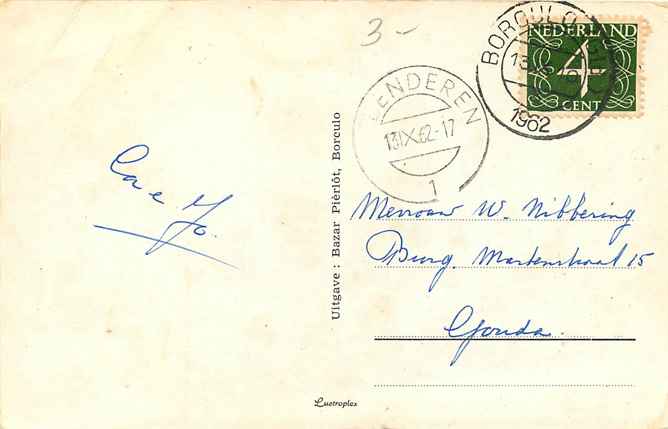 3-
BORCULO
1962
NEDERLAND
4
CENT
ENDEREN
13 IX 62-17
1
Mevrouw W. Nibbering
Burg. Martenstraat 15
Gouda.
Uitgave: Bazar Pièrlôt, Borculo
Lustroplex